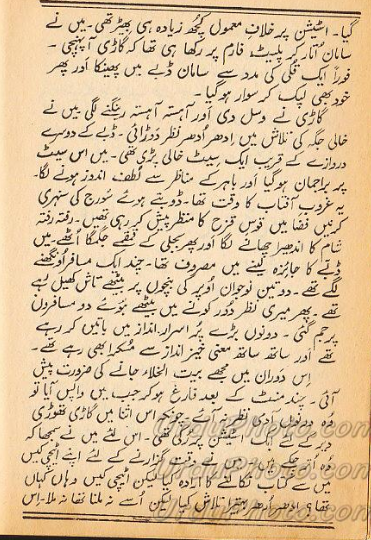 گیا۔ اسٹیشن پر خلافِ معمول کچھ زیادہ ہی بھیڑ تھی۔ میں نے
سامان اُتار کر پلیٹ فارم پر رکھا ہی تھا کہ گاڑی آ پہنچی۔
فوراً ایک قلی کی مدد سے سامان ڈبے میں پھینکا اور پھر
خود بھی لپک کر سوار ہو گیا۔
گاڑی نے وسل دی اور آہستہ آہستہ رینگنے لگی میں نے
خالی جگہ کی تلاش میں اِدھر اُدھر نظر دوڑائی۔ ڈبے کے دوسرے
دروازے کے قریب ایک سیٹ خالی پڑی تھی۔ میں اس سیٹ
پر براجمان ہو گیا اور باہر کے مناظر سے لُطف اندوز ہونے لگا۔
یہ غروبِ آفتاب کا وقت تھا۔ ڈوبتے ہوئے سورج کی سنہری
کرنیں فضا میں قوسِ قزح کا منظر پیش کر رہی تھیں۔ رفتہ رفتہ
شام کا اندھیرا چھانے لگا اور پھر بجلی کے قمقمے جگمگا اُٹھے۔ میں
ڈبے کا جائزہ لینے میں مصروف تھا۔ چند ایک مسافر اُونگھنے
لگے تھے۔ دو تین نوجوان اُوپر کی بنچوں پر بیٹھے تاش کھیل رہے
تھے۔ پھر میری نظر دُور کونے میں بیٹھے ہوئے دو مسافروں
پر جم گئی۔ دونوں بڑے پُر اسرار انداز میں باتیں کر رہے
تھے اور ساتھ ساتھ معنی خیز انداز سے مُسکرا بھی رہے تھے۔
اِس دَوران میں مجھے بیت الخلاء جانے کی ضرورت پیش
آئی۔ چند منٹ کے بعد فارغ ہو کر جب میں واپس آیا تو
وُہ دونوں آدمی نظر نہ آئے۔ چونکہ اس اثنا میں گاڑی تھوڑی
دیر کے لئے اسٹیشن پر رُکی تھی۔ اس لئے میں نے سمجھا کہ
وُہ اُتر گئے ہوں گے۔ میں نے وقت گزارنے کے لئے اپنے اٹیچی کیس
میں سے نکالنے کا ارادہ کیا لیکن اٹیچی کیس وہاں کہاں
تھا؟ اِدھر اُدھر بہتیرا تلاش کیا لیکن اُسے نہ ملنا تھا نہ ملا۔ اِس
UrduPhoto.com
UrduPhoto.com